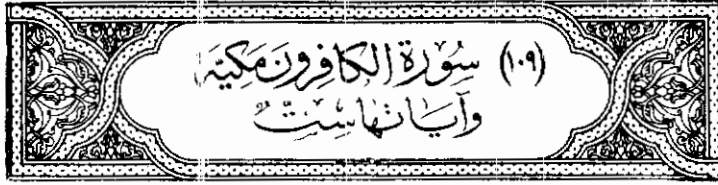 (١٠٩) سُوْرَةِ الكَافِرُونَ مَكِيَّة
وَآيَاتُهَا سِتٌّ